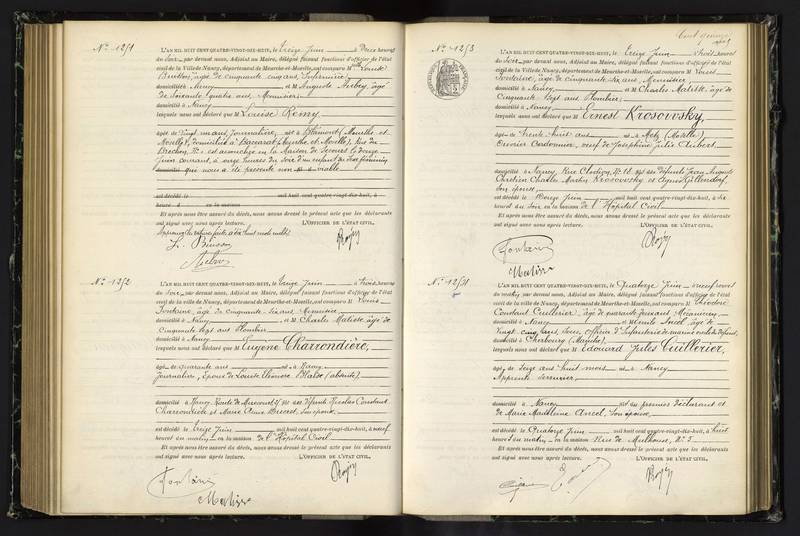 N° 1251
L'AN MIL HUIT CENT QUATRE-VINGT-DIX-HUIT, le treize Juin à Deux heures
du Soir, par devant nous, Adjoint au Maire, délégué faisant fonctions d'officier de l'état
civil de la Ville de Nancy, département de Meurthe-et-Moselle, ont comparu M Louise
âgée de cinquante cinq ans,
domiciliée à Nancy et M Auguste âgé
de Soixante quatre ans, Menuisier
domicilié à Nancy
lesquels nous ont déclaré que M Louise Remy
âgée de Vingt un ans, Journalière, née à Blâmont (Meurthe et
Moselle), domiciliée à Baccarat (Meurthe et Moselle), Rue du
est accouchée en la Maison de Secours le douze
Juin courant, à onze heures du Soir d'un enfant du Sexe féminin
domicilié qui nous a été présenté non viable
est décédé le mil huit cent quatre-vingt-dix-huit, à
heure d en la maison
Et après nous être assuré du décès, nous avons dressé le présent acte que les déclarants
ont signé avec nous après lecture. L'OFFICIER DE L'ÉTAT CIVIL,
N° 1252
L'AN MIL HUIT CENT QUATRE-VINGT-DIX-HUIT, le treize Juin à trois heures
du Soir, par devant nous, Adjoint au Maire, délégué faisant fonctions d'officier de l'état
civil de la ville de Nancy, département de Meurthe-et-Moselle, ont comparu M Louis
Fontaine, âgé de cinquante six ans, Menuisier
domicilié à Nancy et M Charles Matisse âgé de
Cinquante Sept ans Plombier
domicilié à Nancy
lesquels nous ont déclaré que M Eugène Charrondière,
âgé de quarante ans né à Nancy
Journalier, Époux de Louise Eléonore (absente),
domicilié à Nancy, Route de Mirecourt, fils des défunts Nicolas Constant
Charrondière et Marie Anne Son épouse
est décédé le treize Juin mil huit cent quatre-vingt-dix-huit, à neuf
heures du matin en la maison de l'Hôpital Civil
Et après nous être assuré du décès, nous avons dressé le présent acte que les déclarants
ont signé avec nous après lecture. L'OFFICIER DE L'ÉTAT CIVIL,
Fontaine
Matisse
Cent quinze
N° 1253
L'AN MIL HUIT CENT QUATRE-VINGT-DIX-HUIT, le treize Juin à trois heures
du Soir, par devant nous, Adjoint au Maire, délégué faisant fonctions d'officier de l'état
civil de la Ville de Nancy, département de Meurthe-et-Moselle, ont comparu M Louis
Fontaine, âgé de cinquante six ans Menuisier
domicilié à Nancy et M Charles Matisse âgé de
Cinquante Sept ans Plombier
domicilié à Nancy
lesquels nous ont déclaré que M Ernest Krosowsky,
âgé de trente huit ans né à Metz (Moselle),
Ouvrier Cordonnier, veuf de Joséphine Julie Aubert
domicilié à Nancy, Rue Clodion, N° 16, fils des défunts Jean Auguste
Chrétien Charles Martin Krosowsky et Agnès
Son épouse,
est décédé le Douze Juin mil huit cent quatre-vingt-dix-huit, à six
heures du soir en la maison de l'Hôpital Civil
Et après nous être assuré du décès, nous avons dressé le présent acte que les déclarants
ont signé avec nous après lecture. L'OFFICIER DE L'ÉTAT CIVIL,
Fontaine
Matisse
N° 1254
L'AN MIL HUIT CENT QUATRE-VINGT-DIX-HUIT, le Quatorze Juin à neuf heures
du matin, par devant nous, Adjoint au Maire, délégué faisant fonctions d'officier de l'état
civil de la ville de Nancy, département de Meurthe-et-Moselle, ont comparu M Théodore
Constant Cuillerier, âgé de quarante deux ans, Mécanicien,
domicilié à Nancy et M Ancel, âgé de
Vingt cinq ans, Sous officier d'Infanterie de marine
domicilié à Cherbourg (Manche),
lesquels nous ont déclaré que M Edouard Jules Cuillerier,
âgé de Seize ans huit mois né à Nancy
Apprenti Serrurier
domicilié à Nancy fils du premier déclarant et
de Marie Madeleine Ancel, Son épouse
est décédé le Quatorze Juin mil huit cent quatre-vingt-dix-huit, à huit
heures du matin en la maison Rue de Mulhouse, N° 3
Et après nous être assuré du décès, nous avons dressé le présent acte que les déclarants
ont signé avec nous après lecture. L'OFFICIER DE L'ÉTAT CIVIL,